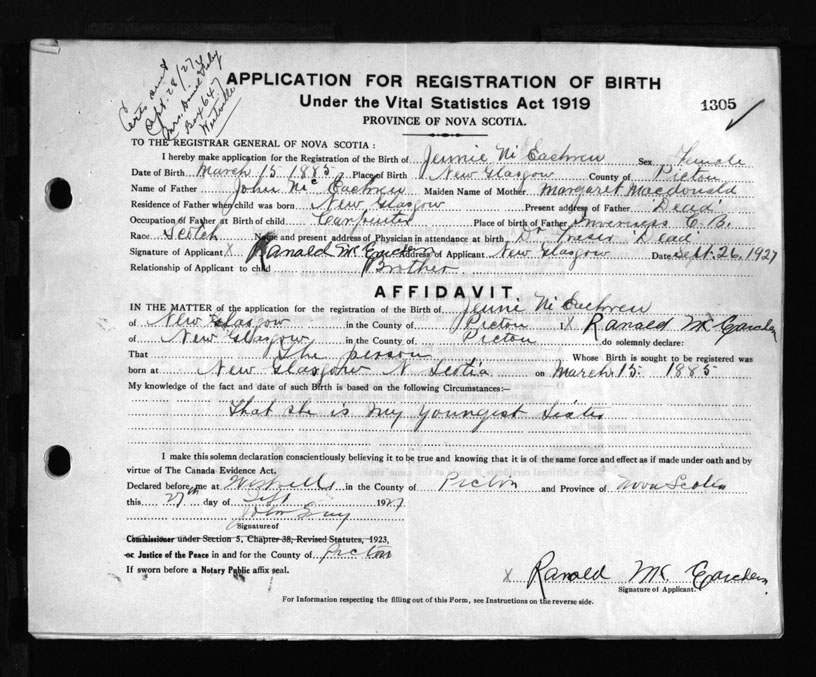 Certs sent
Sept. 28/27
Mrs. Daniel
Box 647
Westville
APPLICATION FOR REGISTRATION OF BIRTH
Under the Vital Statistics Act 1919
1305
PROVINCE OF NOVA SCOTIA.
TO THE REGISTRAR GENERAL OF NOVA SCOTIA:
I hereby make application for the Registration of the Birth of Jennie Mc Eachren Sex Female
Date of Birth March 15 1885 Place of Birth New Glasgow County of Picton
Name of Father John Mc Eachren Maiden Name of Mother Margaret Macdonald
Residence of Father when child was born New Glasgow Present address of Father 'Dead'
Occupation of Father at Birth of child Carpenter Place of birth of Father Inverness C.B.
Race Scotch Name and present address of Physician in attendance at birth Dr Fraser 'Dead'
Signature of Applicant X Ranald Mc Eachern Address of Applicant New Glasgow Date Sept. 26, 1927
Relationship of Applicant to child Brother
AFFIDAVIT.
IN THE MATTER of the application for the registration of the Birth of Jennie Mc Eachren
of New Glasgow in the County of Picton X Ranald Mc Eachern
of New Glasgow in the County of Picton do solemnly declare:
That The person Whose Birth is sought to be registered was
born at New Glasgow N. Scotia on March 15. 1885
My knowledge of the fact and date of such Birth is based on the following Circumstances:—
That she is my youngest Sister
I make this solemn declaration conscientiously believing it to be true and knowing that it is of the same force and effect as if made under oath and by
virtue of The Canada Evidence Act.
Declared before me at Westville in the County of Picton and Province of Nova Scotia
this 27th day of Sept 1927
John Guy
Signature of
Commissioner under Section 5, Chapter 38, Revised Statutes, 1923,
or Justice of the Peace in and for the County of Picton
If sworn before a Notary Public affix seal.
X Ranald Mc Eachern
Signature of Applicant.
For Information respecting the filling out of this Form, see Instructions on the reverse side.